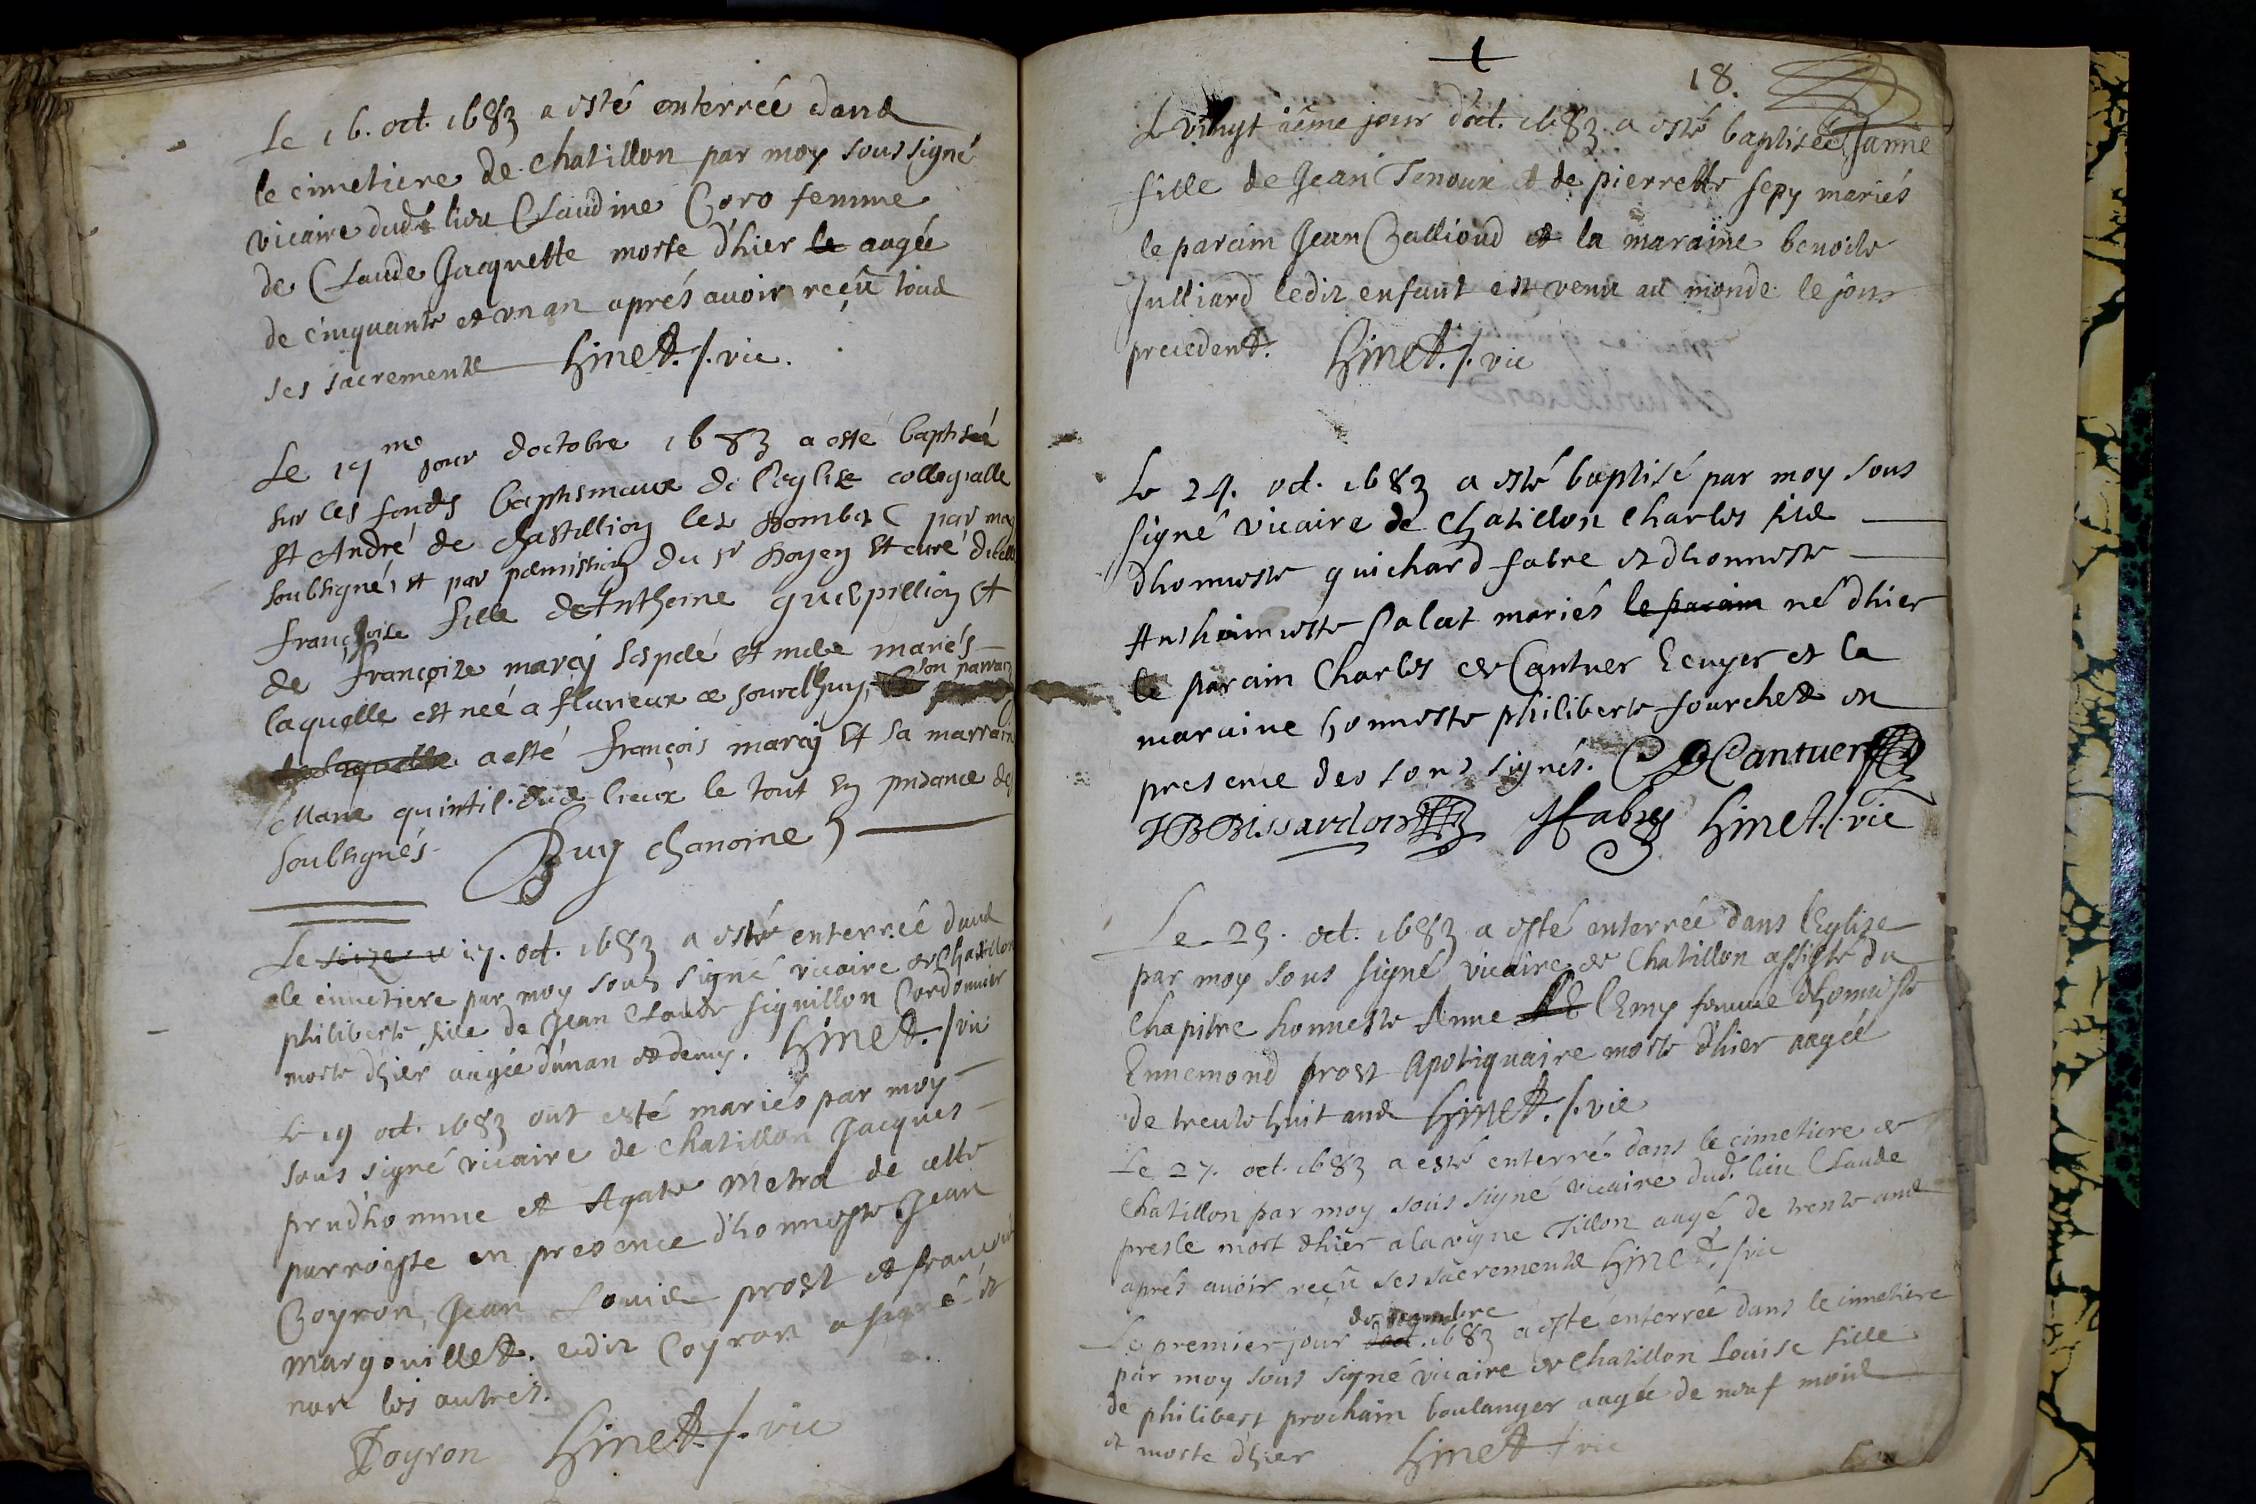 Le 16. oct. 1683 a esté enterrée dans
le cimetiere de chatillon par moy soussigné
vicaire dudt lieu Claudine Coro femme
de Claude Jacquette morte d'hier le aagée
de cinquante et un an aprés avoir reçû tous
ses sacrements hinet./. vic.
Le 17me jour doctobre 1683 a esté baptisée
sur les fonds baptismaux de l'eglise collegialle
st André de chastillion les Dombes par moy
soubsigné, et par permission du sr Doyen et curé
françoise fille de Anthoine guerpillion et
de françoize maraj mariés
son parrain
laquelle est née a flurieux ce jourdhuy,
a esté françois maraj et sa marraine
Marie quintil. dud. lieux le tout en pnsance des
soubsignés. Buy chanoine
Le seize 17. oct. 1683 a esté enterrée dans
le cimetiere par moy sous signé vicaire de Chatillon
philiberte fille de Jean Claude siguillon Cordonnier
morte d'hier aagée d'un an et demy. hinet./. vic
Le 19 oct. 1683 ont esté mariés par moy
sous signé vicaire de chatillon Jacques
prud'homme et Agate Metra de cette
parroisse en presence d'honneste Jean
Coyron, Jean Louis prost et francois
margouillet. ledit Coyron a signé et
non les autres.
Coyron hinet./. vic
18.
Le vingt ieme jour doct. 1683 a esté baptisée Janne
fille de Jean Tenoux et de pierrette sepy mariés
le parain Jean Callioud et la maraine benoite
Julliard ledit enfant est venu au monde le jour
precedent. hinet./. vic
Le 24. oct. 1683 a esté baptisé par moy sous
signé vicaire de Chatillon Charles fils
dhonneste guichard fabre et dhonneste
Anthoinette Palat mariés le parain né d'hier
le parain Charles de Cantuer Ecuyer et la
maraine honneste philiberte fourchet en
presence des sous signés. C D Cantuer
JB Bissardon Hfabry hinet./. vic
Le 25. oct. 1683 a esté enterrée dans l'Eglize
par moy sous signé vicaire de Chatillon assisté du
Chapitre honneste Anne Lemy femme d'honneste
Ennemond prost Apotiquaire morte d'hier aagée
de trente huit ans hinet./. vic
Le 27. oct. 1683 a esté enterré dans le cimetiere de
Chatillon par moy sous signé vicaire dud. lieu Claude
presle mort d'hier a la vigne Tillon aagé de trente ans
aprés avoir reçû ses sacrements hinet./. vic
de novembre
Le premier jour doct. 1683 a esté enterrée dans le cimetiere
par moy sous signé vicaire de Chatillon Louise fille
de philibert prochain boulanger aagée de neuf mois
et morte d'hier hinet./. vic